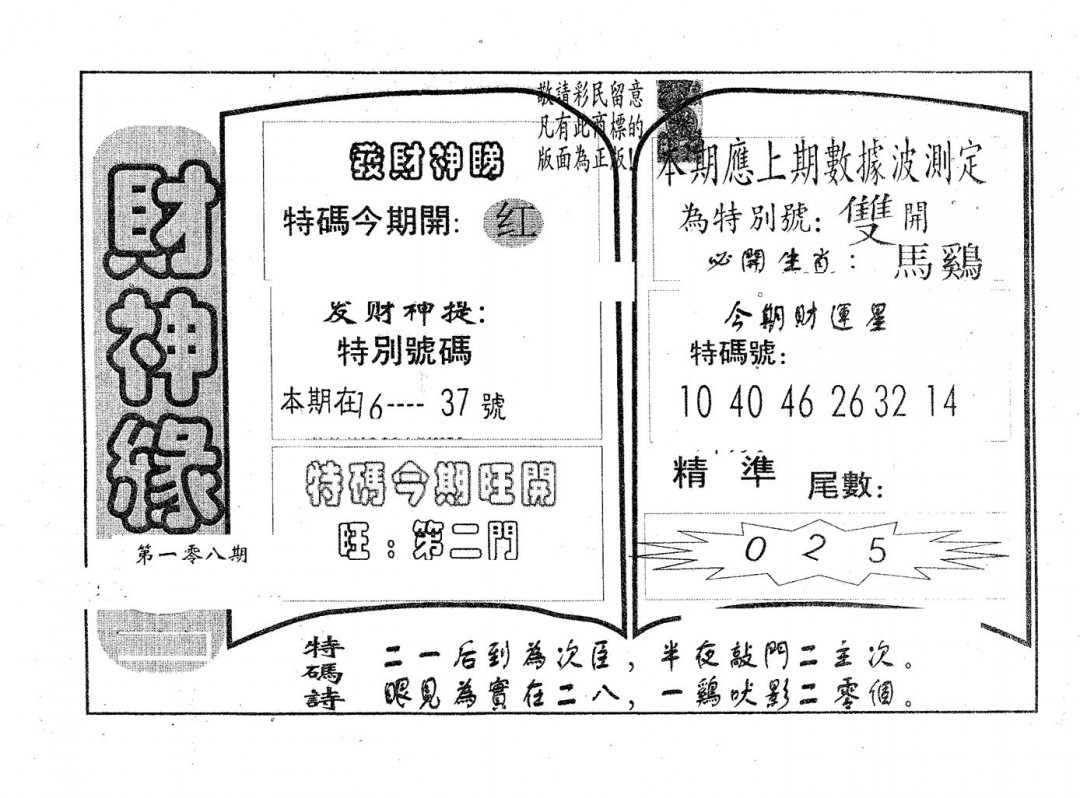 財神緣
第一零八期
敬請彩民留意
凡有此商標的
版面為正版!
發財神睇
特碼今期開: 红
发财神提:
特別號碼
本期在16----37號
特碼今期旺開
旺:第二門
本期應上期數據波測定
為特別號:雙開
必開生肖:馬鷄
今期財運星
特碼號:
10 40 46 26 32 14
精準 尾數:
0 2 5
特碼詩
二一后到為次臣,半夜敲門二主次。
眼見為實在二八,一鷄吠影二零個。